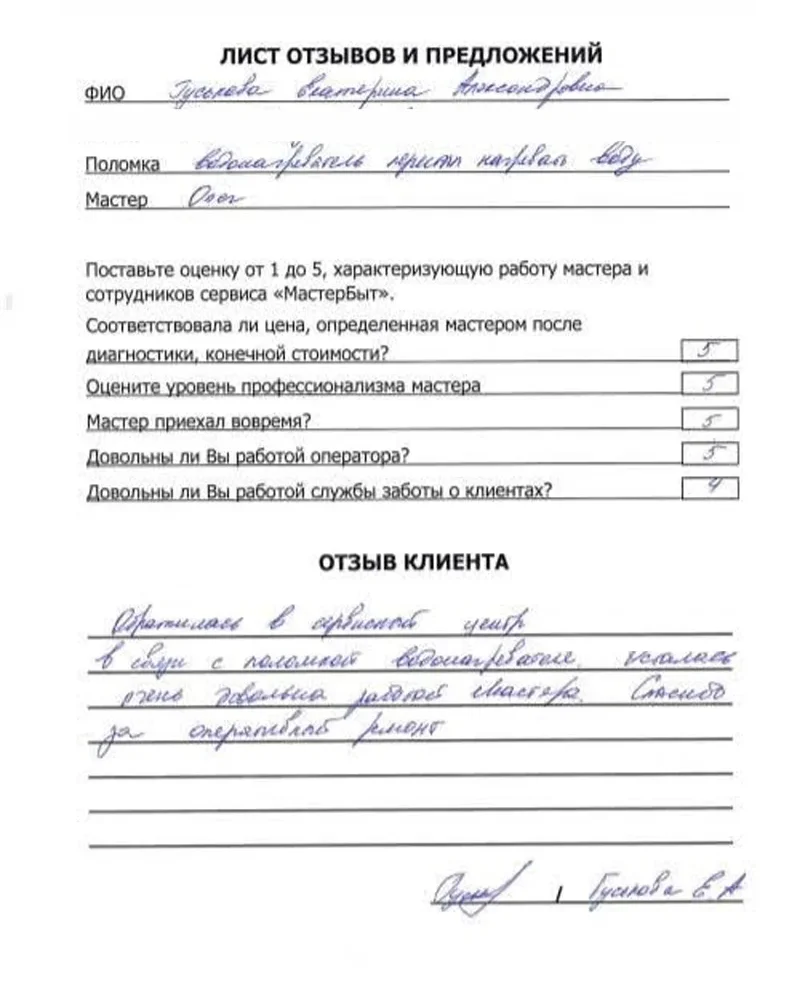 ЛИСТ ОТЗЫВОВ И ПРЕДЛОЖЕНИЙ
ФИО Гуськова Екатерина Александровна
Поломка водонагреватель перестал нагревать воду
Мастер Олег
Поставьте оценку от 1 до 5, характеризующую работу мастера и
сотрудников сервиса «МастерБыт».
Соответствовала ли цена, определенная мастером после
диагностики, конечной стоимости? 5
Оцените уровень профессионализма мастера 5
Мастер приехал вовремя? 5
Довольны ли Вы работой оператора? 5
Довольны ли Вы работой службы заботы о клиентах? 4
ОТЗЫВ КЛИЕНТА
Обратилась в сервисный центр
в связи с поломкой водонагревателя. осталась
очень довольна работой мастера. Спасибо
за оперативный ремонт
/ Гуськова Е А